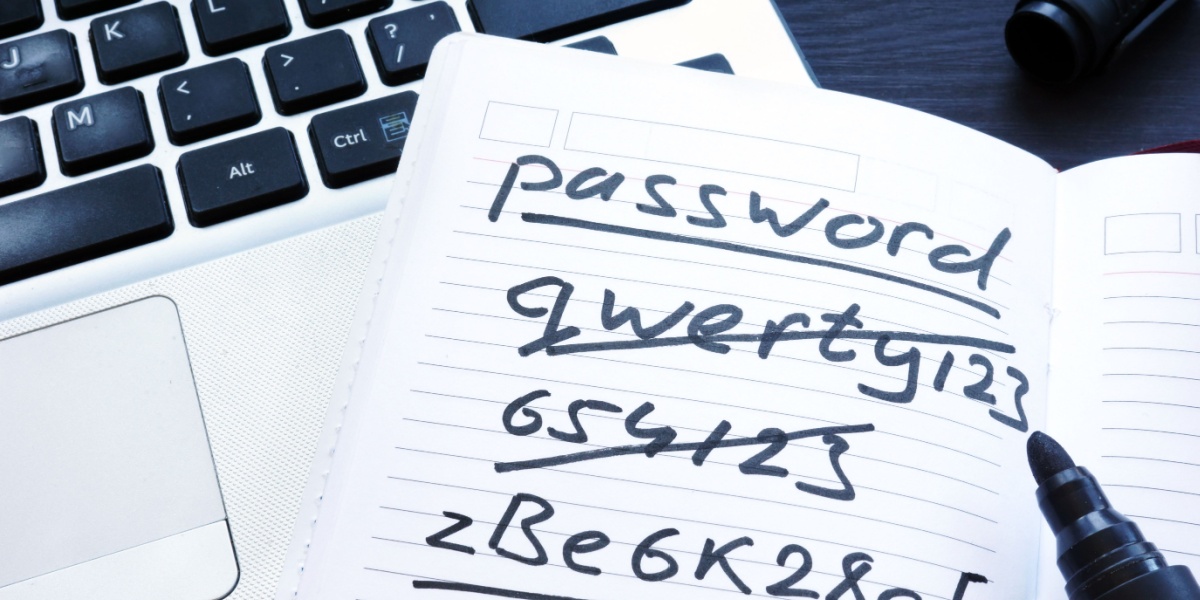 L
K
J
? /
> .
< ,
M
Ctrl
Alt
password
qwerty123
654123
zBe6K2